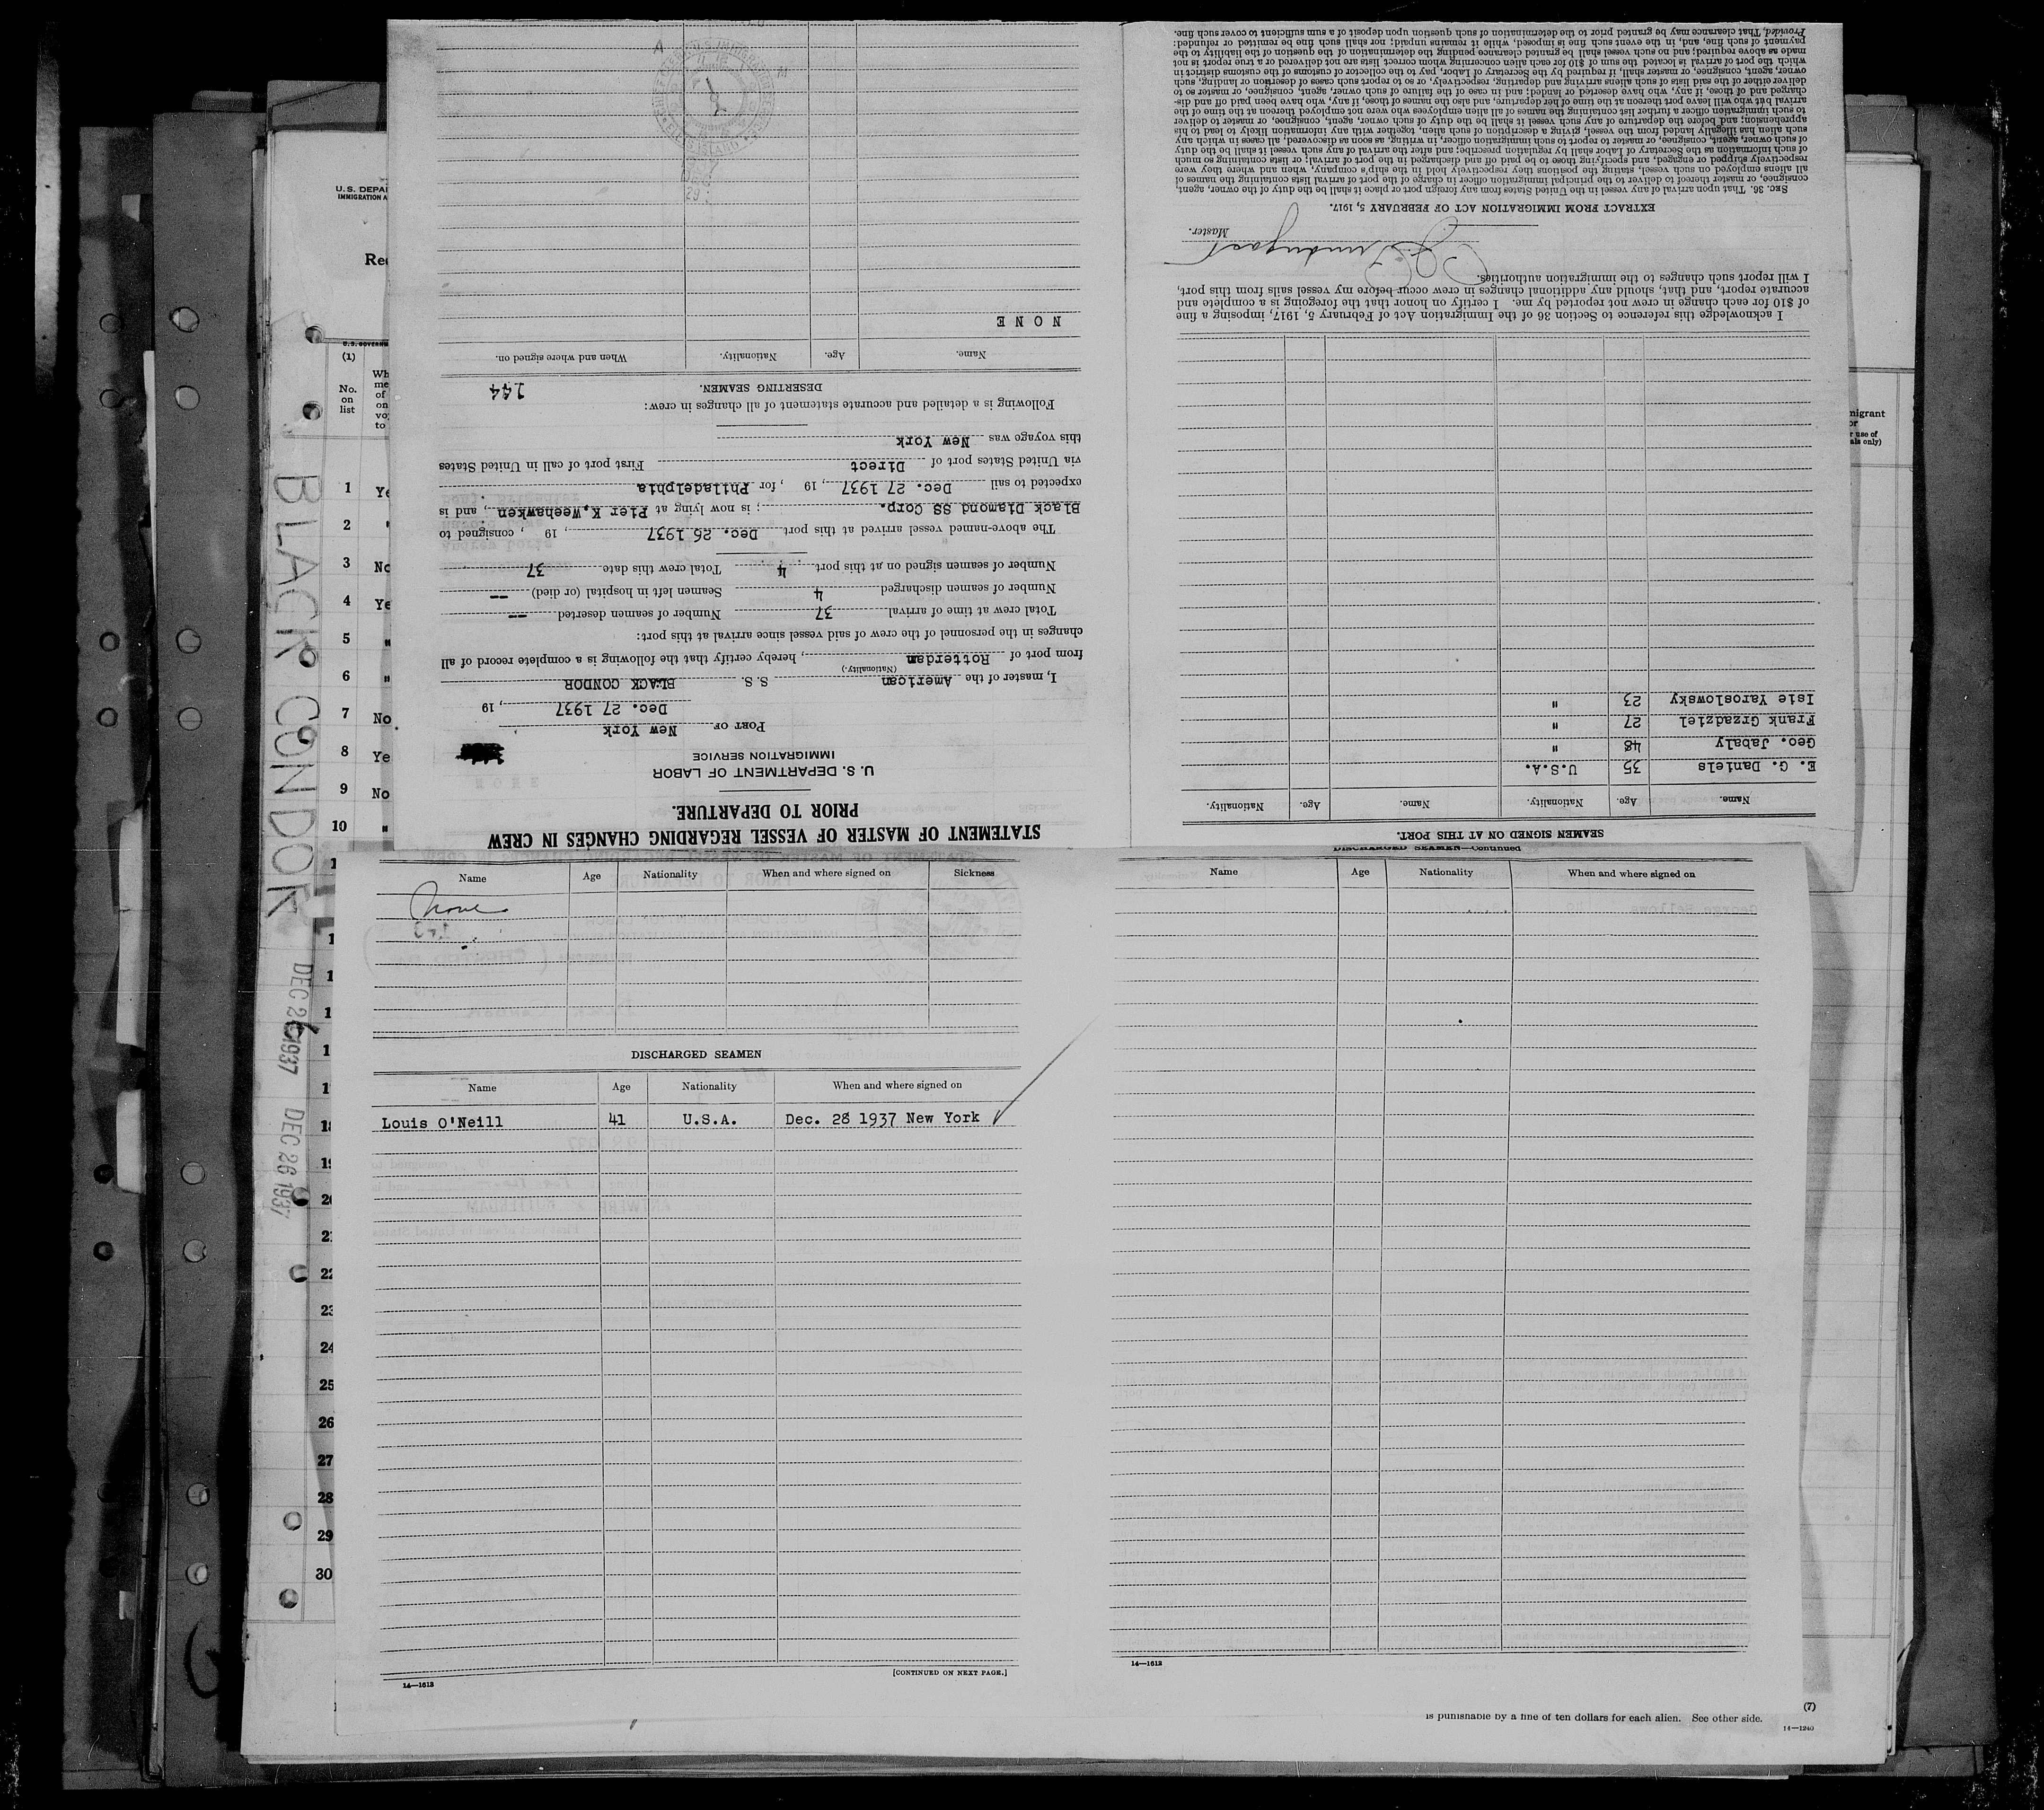 STATEMENT OF MASTER OF VESSEL REGARDING CHANGES IN CREW
PRIOR TO DEPARTURE.
U. S. DEPARTMENT OF LABOR
IMMIGRATION SERVICE
PORT OF New York
Dec. 27 1937, 19
I, master of the American S. S. BLACK CONDOR
(Nationality.)
from port of Rotterdam, hereby certify that the following is a complete record of all
changes in the personnel of the crew of said vessel since arrival at this port:
Total crew at time of arrival 37 Number of seamen deserted --
Number of seamen discharged 4 Seamen left in hospital (or died) --
Number of seamen signed on at this port 4 Total crew this date 37
The above-named vessel arrived at this port Dec. 26 1937, 19 , consigned to
Black Diamond SS Corp. ; is now lying at Pier K, Weehawken, and is
expected to sail Dec. 27 1937, 19 , for Philadelphia
via United States port of Direct First port of call in United States
this voyage was New York
Following is a detailed and accurate statement of all changes in crew:
DESERTING SEAMEN.
144
Name. Age. Nationality. When and where signed on.
N O N E
SEAMEN SIGNED ON AT THIS PORT.
Name. Age. Nationality. Name. Age. Nationality.
E. G. Daniels 35 U.S.A.
Geo. Jabaly 48 "
Frank Grzadziel 27 "
Isie Yaroslowsky 23 "
I acknowledge this reference to Section 36 of the Immigration Act of February 5, 1917, imposing a fine
of $10 for each change in crew not reported by me. I certify on honor that the foregoing is a complete and
accurate report, and that, should any additional changes in crew occur before my vessel sails from this port,
I will report such changes to the immigration authorities.
Master.
EXTRACT FROM IMMIGRATION ACT OF FEBRUARY 5, 1917.
Sec. 36. That upon arrival of any vessel in the United States from any foreign port or place it shall be the duty of the owner, agent,
consignee, or master thereof to deliver to the principal immigration officer in charge of the port of arrival lists containing the names of
all aliens employed on such vessel, stating the positions they respectively hold in the ship's company, when and where they were
respectively shipped or engaged, and specifying those to be paid off and discharged in the port of arrival; or lists containing so much
of such information as the Secretary of Labor shall by regulation prescribe; and after the arrival of any such vessel it shall be the duty
of such owner, agent, consignee, or master to report to such immigration officer, in writing, as soon as discovered, all cases in which any
such alien has illegally landed from the vessel, giving a description of such alien, together with any information likely to lead to his
apprehension; and before the departure of any such vessel it shall be the duty of such owner, agent, consignee, or master to deliver
to such immigration officer a further list containing the names of all alien employees who were not employed thereon at the time of the
arrival but who will leave port thereon at the time of her departure, and also the names of those, if any, who have been paid off and dis-
charged and of those, if any, who have deserted or landed; and in case of the failure of such owner, agent, consignee, or master so to
deliver either of the said lists of such aliens arriving and departing, respectively, or so to report such cases of desertion or landing, such
owner, agent, consignee, or master shall, if required by the Secretary of Labor, pay to the collector of customs of the customs district in
which the port of arrival is located the sum of $10 for each alien concerning whom correct lists are not delivered or a true report is not
made as above required; and no such vessel shall be granted clearance pending the determination of the question of the liability to the
payment of such fine, and, in the event such fine is imposed, while it remains unpaid; nor shall such fine be remitted or refunded:
Provided, That clearance may be granted prior to the determination of such question upon deposit of a sum sufficient to cover such fine.
U.S. DEPA
IMMIGRATION A
Re
U.S. GOVERN
(1)
No.
on
list
Wh
me
of
on
vo
to
1 Ye
2 "
3 No
4 Ye
5 "
6 "
7 No
8 Ye
9 No
10 "
18
19
20
21
22
23
24
25
26
27
28
29
30
BLACK CONDOR
DEC 26 1937
DEC 26 1937
migrant
or
r use of
als only)
Name Age Nationality When and where signed on Sickness
None
DISCHARGED SEAMEN
Name Age Nationality When and where signed on
Louis O'Neill 41 U.S.A. Dec. 28 1937 New York
[CONTINUED ON NEXT PAGE.]
14—1612
DISCHARGED SEAMEN—Continued
Name Age Nationality When and where signed on
14—1612
(7)
is punishable by a fine of ten dollars for each alien. See other side.
14—1240